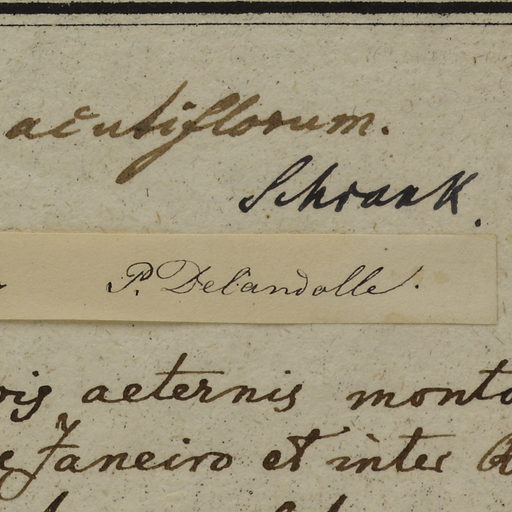 acutiflorum.
Schrank.
P. Decandolle.
aeternis
Janeiro et inter